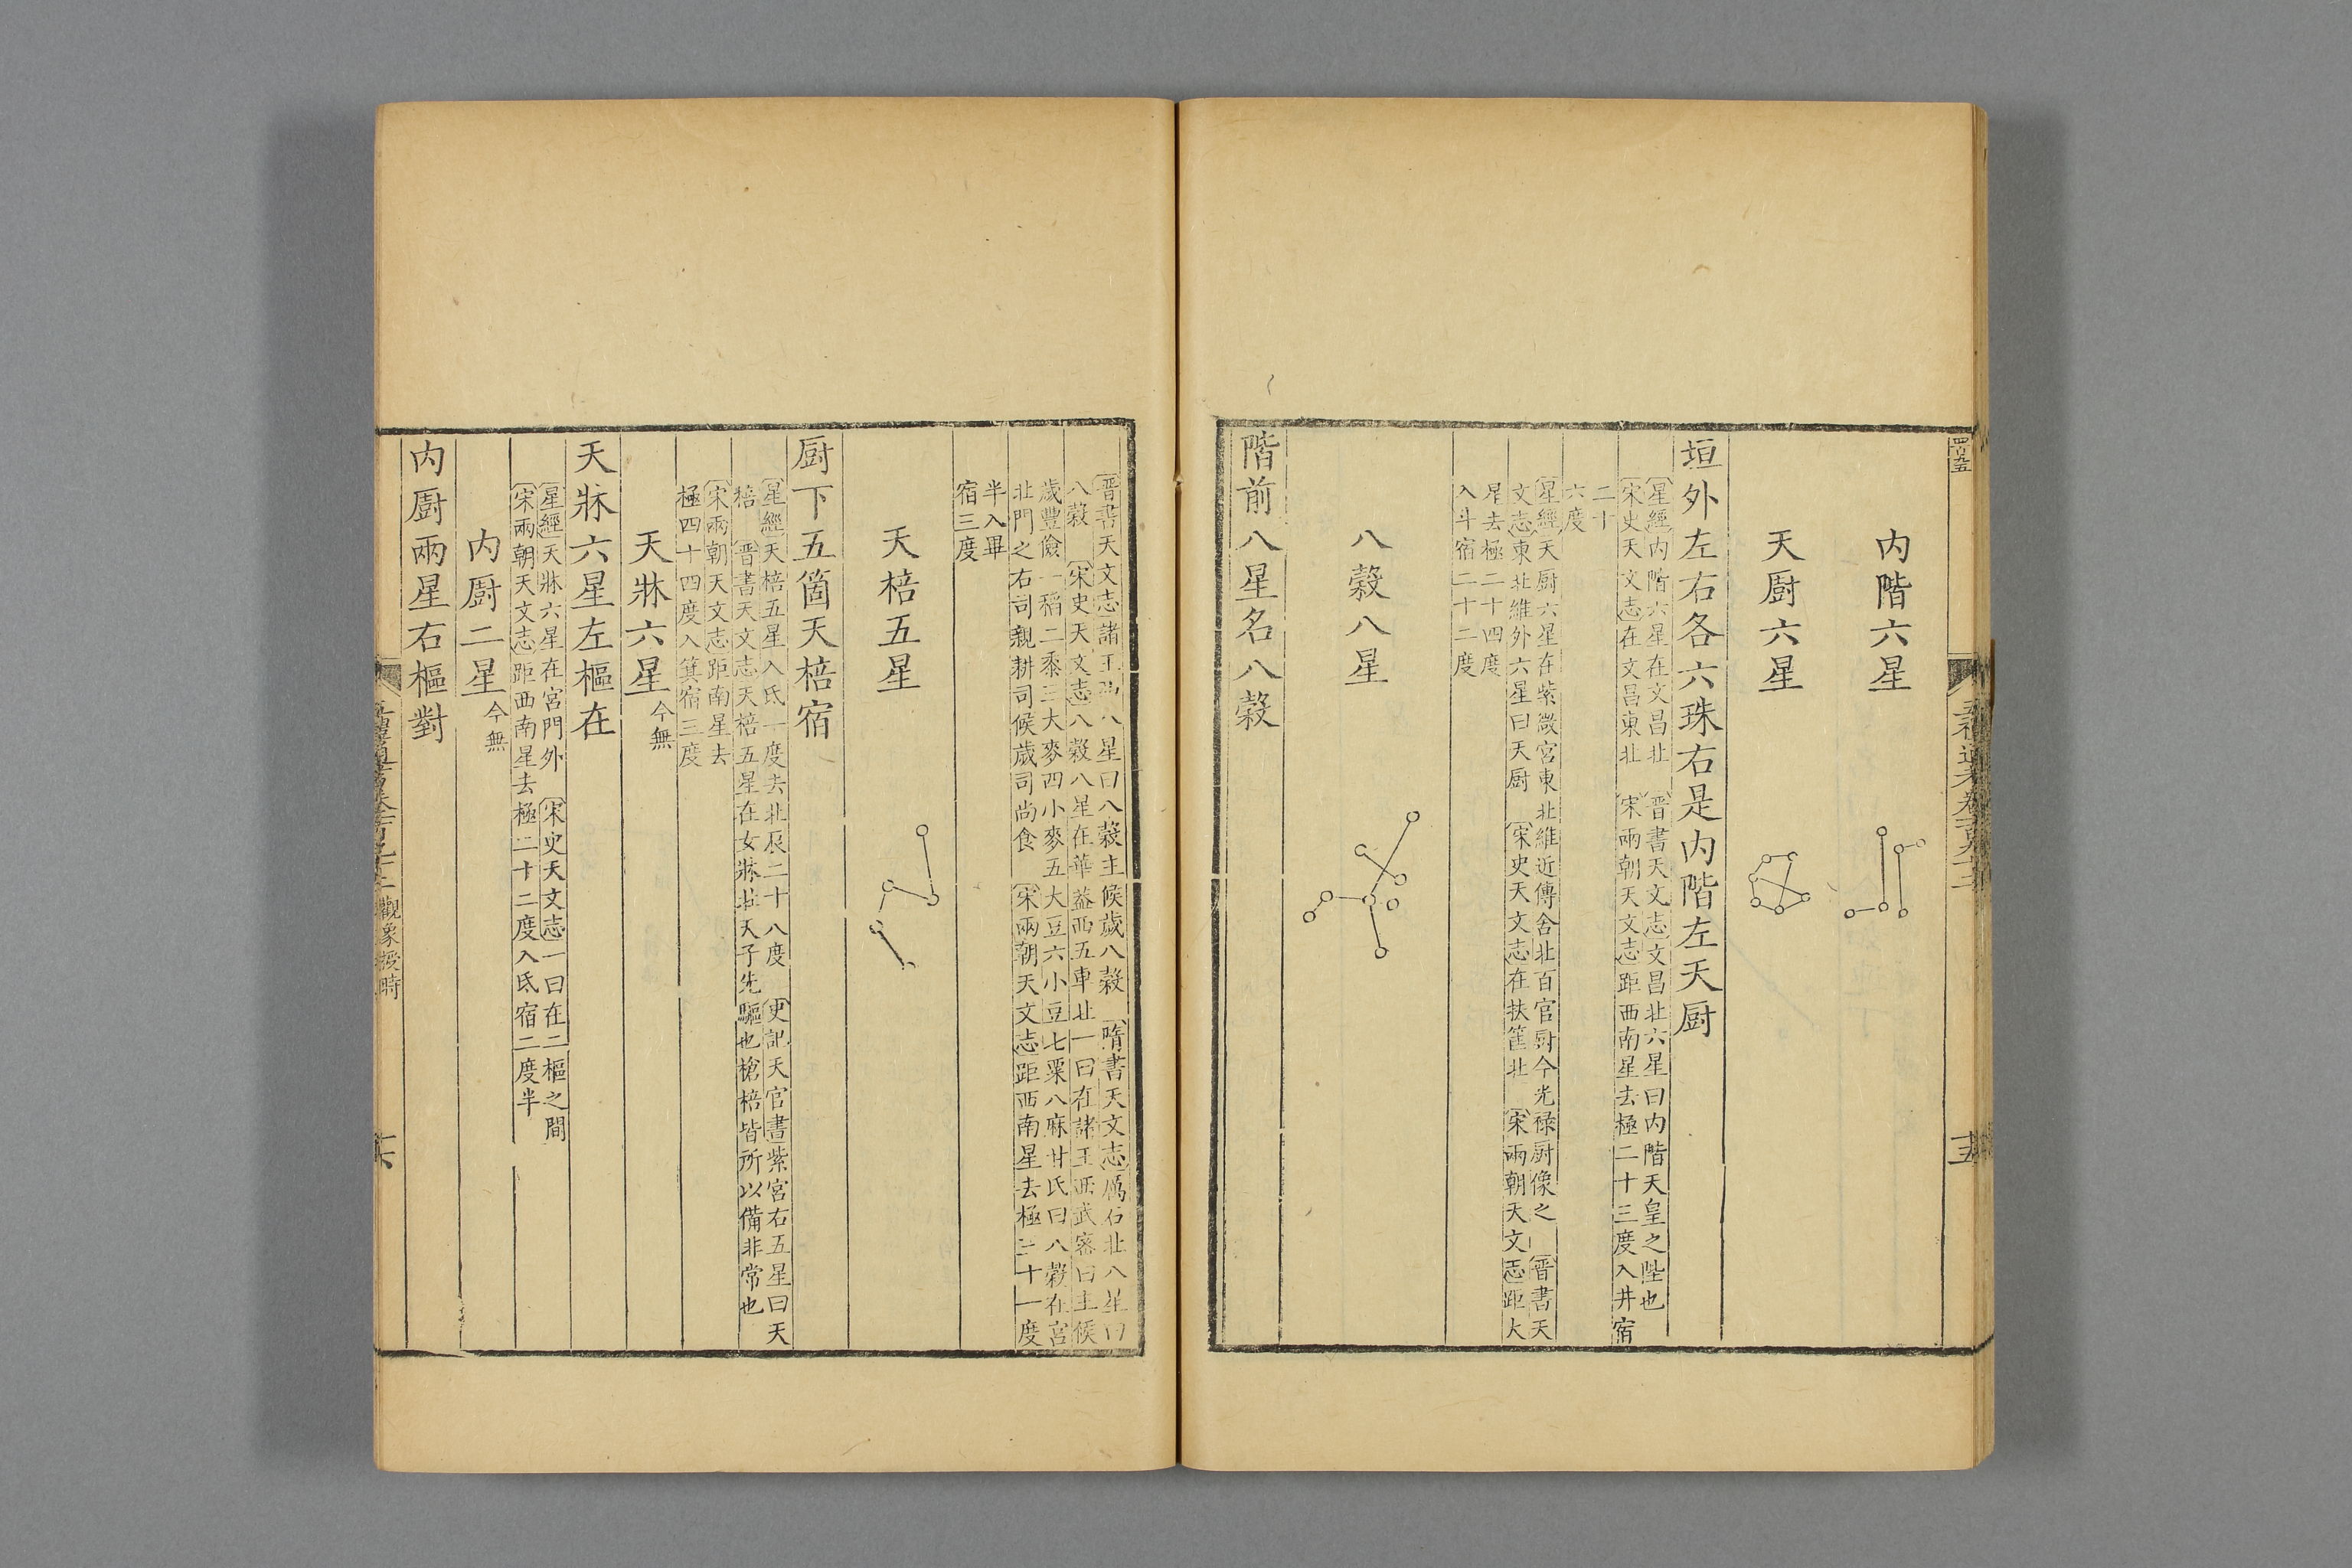 内階六星
天廚六星
垣外左右各六珠右是内階左天廚
星經内階六星在文昌北 晋書天文志文昌北六星曰内階天皇之陛也
宋史天文志在文昌東北 宋兩朝天文志距西南星去極二十三度入井宿
二十
六度
星經天廚六星在紫微宮東北維近傳舍北百官廚今光祿廚像之 晋書天
文志東北維外六星曰天廚 宋史天文志在扶筐北 宋兩朝天文志距大
星去極二十四度
入斗宿二十二度
八榖八星
階前八星名八榖
晋書天文志諸王西八星曰八榖主候歲八榖 隋書天文志為石北八星曰
八榖 宋史天文志八榖八星在華蓋西五車北一曰在諸王西武密曰主候
歲豐儉一稻二黍三大麥四小麥五大豆六小豆七粟八麻甘氏曰八榖在宮
北門之右司親耕司候歲司尚食 宋兩朝天文志距西南星去極三十一度
半入畢
宿三度
天棓五星
廚下五箇天棓宿
星經天棓五星入氐一度去北辰二十八度 史記天官書紫宮右五星曰天
棓 晋書天文志天棓五星在女牀北天子先驅也槍棓皆所以備非常也
宋兩朝天文志距南星去
極四十四度入箕宿三度
天牀六星今無
天牀六星左樞在
星經天牀六星在宮門外 宋史天文志一曰在二樞之間
宋兩朝天文志距西南星去極二十二度入氐宿二度半
内廚二星今無
内廚兩星右樞對
觀象授時